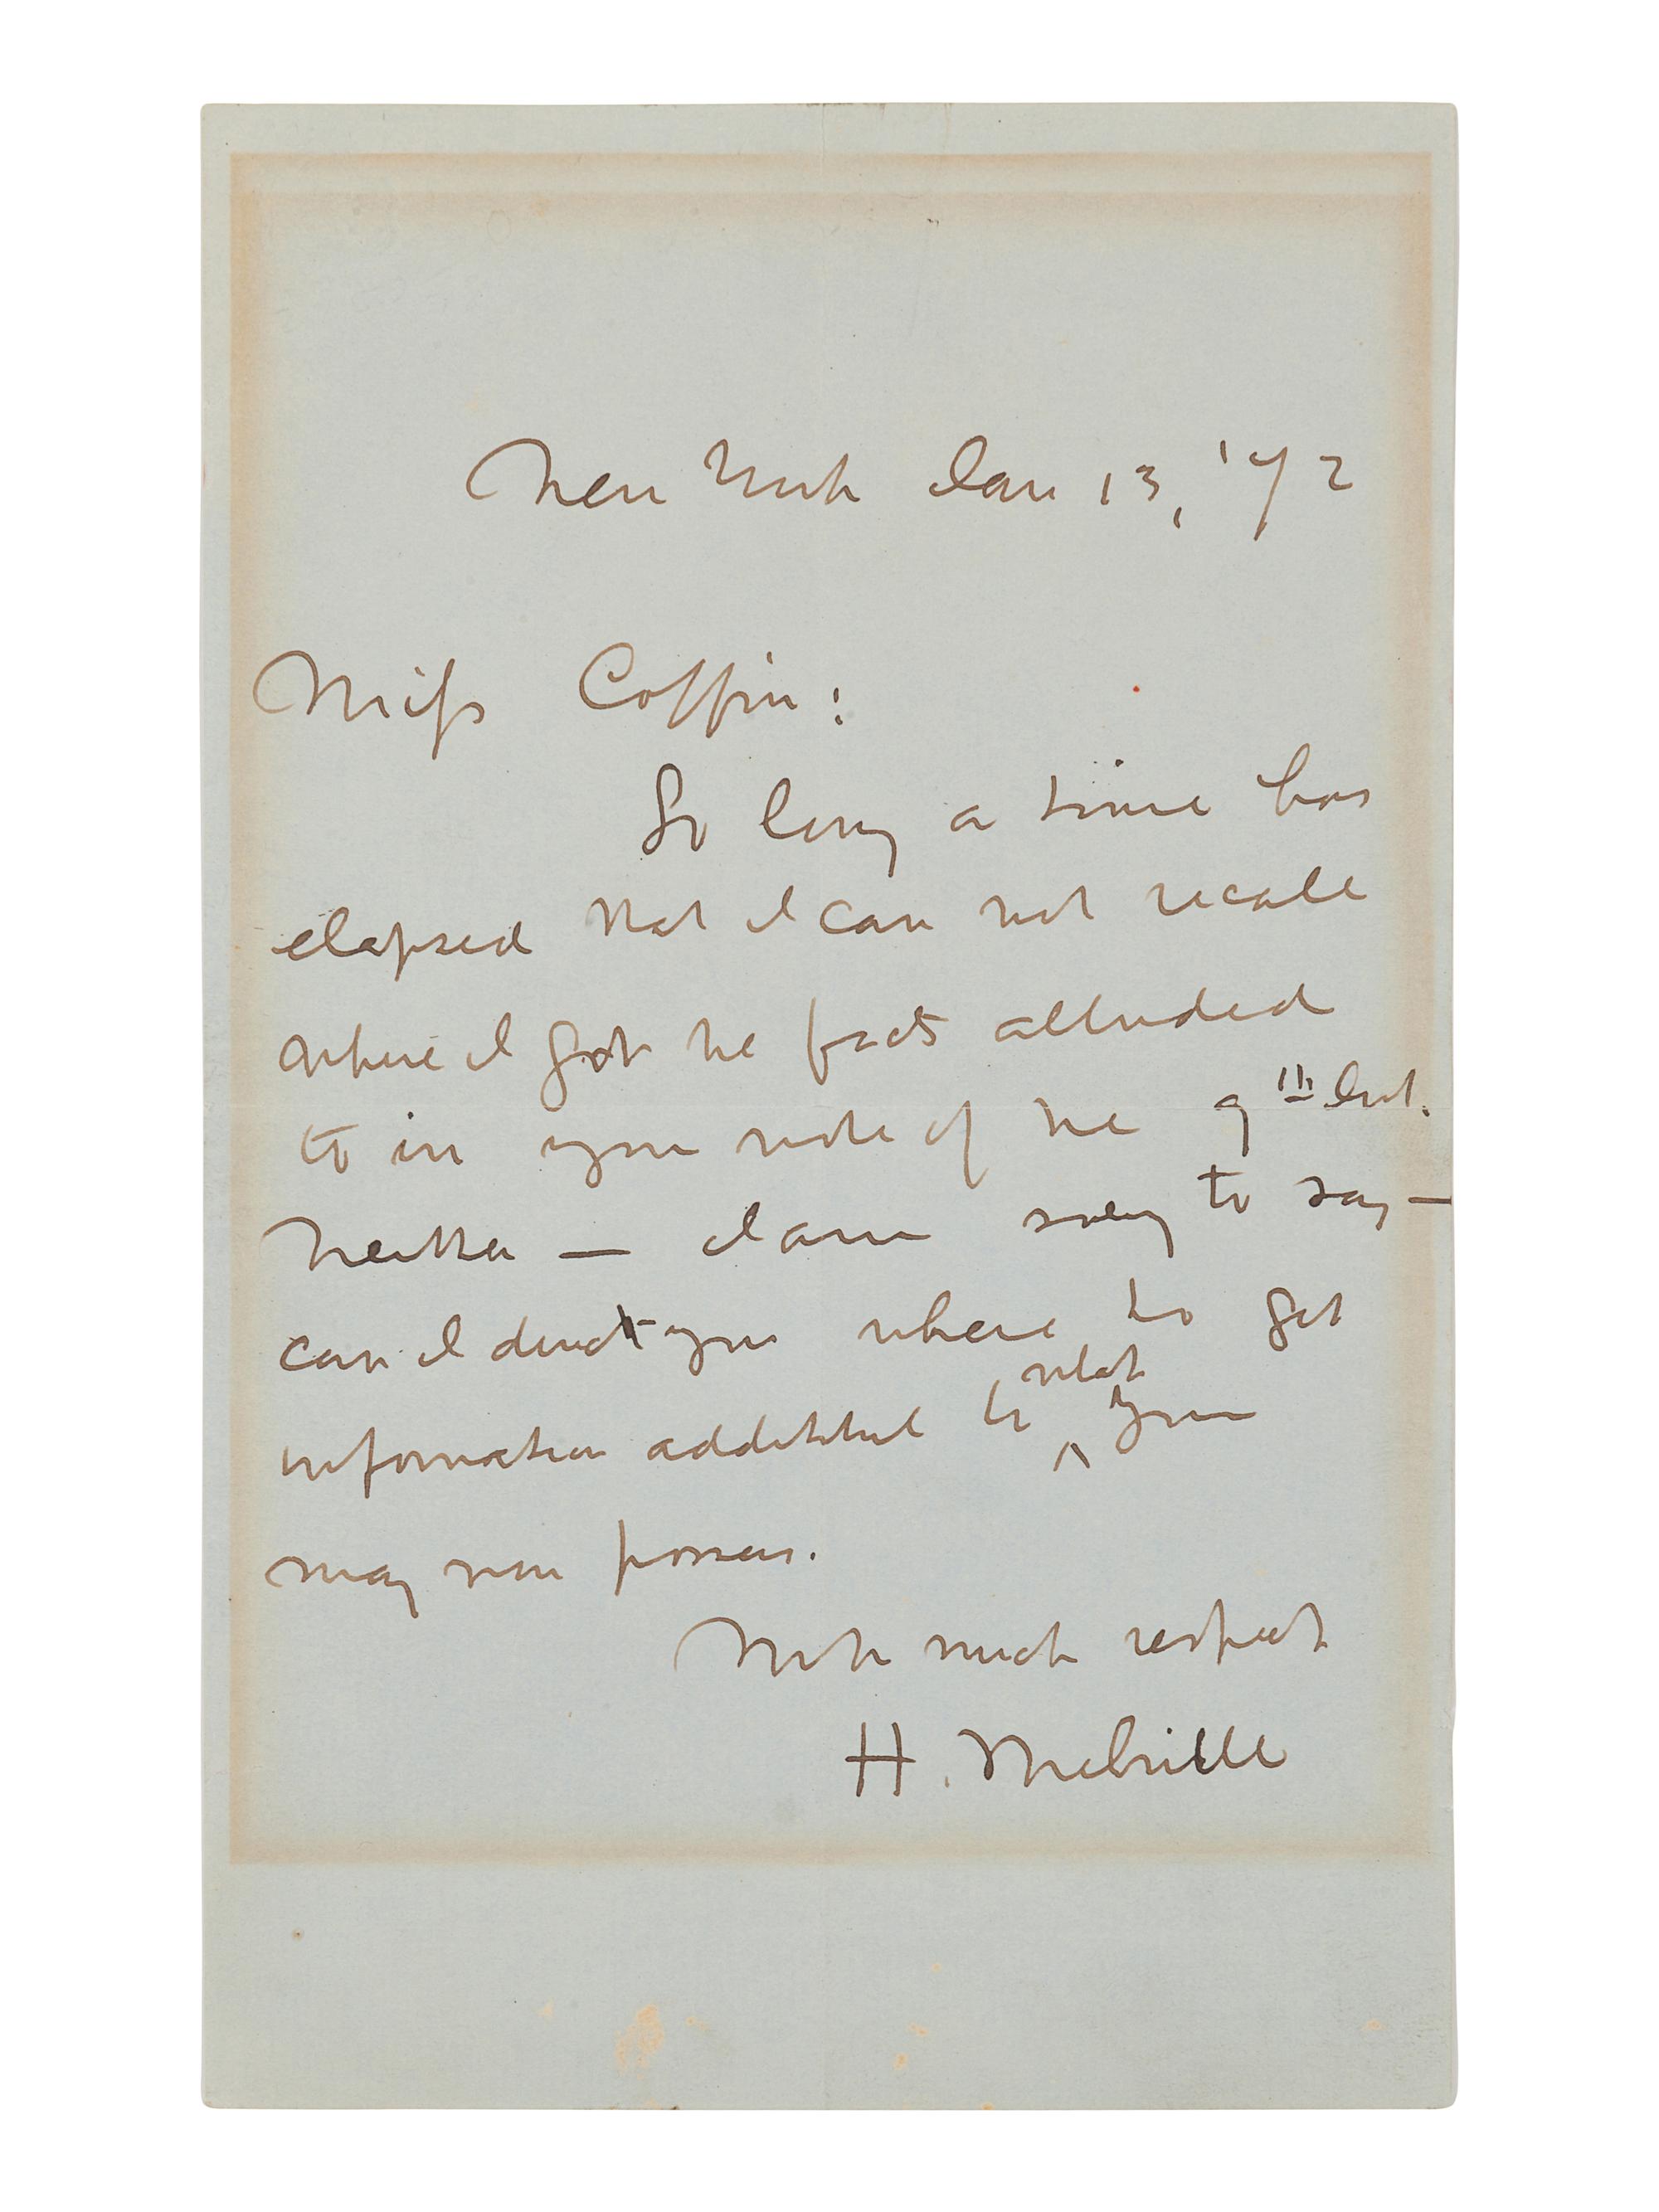 New York Jan 13, '72
Miss Coffin:
So long a time has
elapsed that I can not recall
where I got the facts alluded
to in your note of the 9th Inst.
Neither — I am sorry to say —
can I direct you where to get
information additional to what you
may now possess.
With much respect
H. Melville